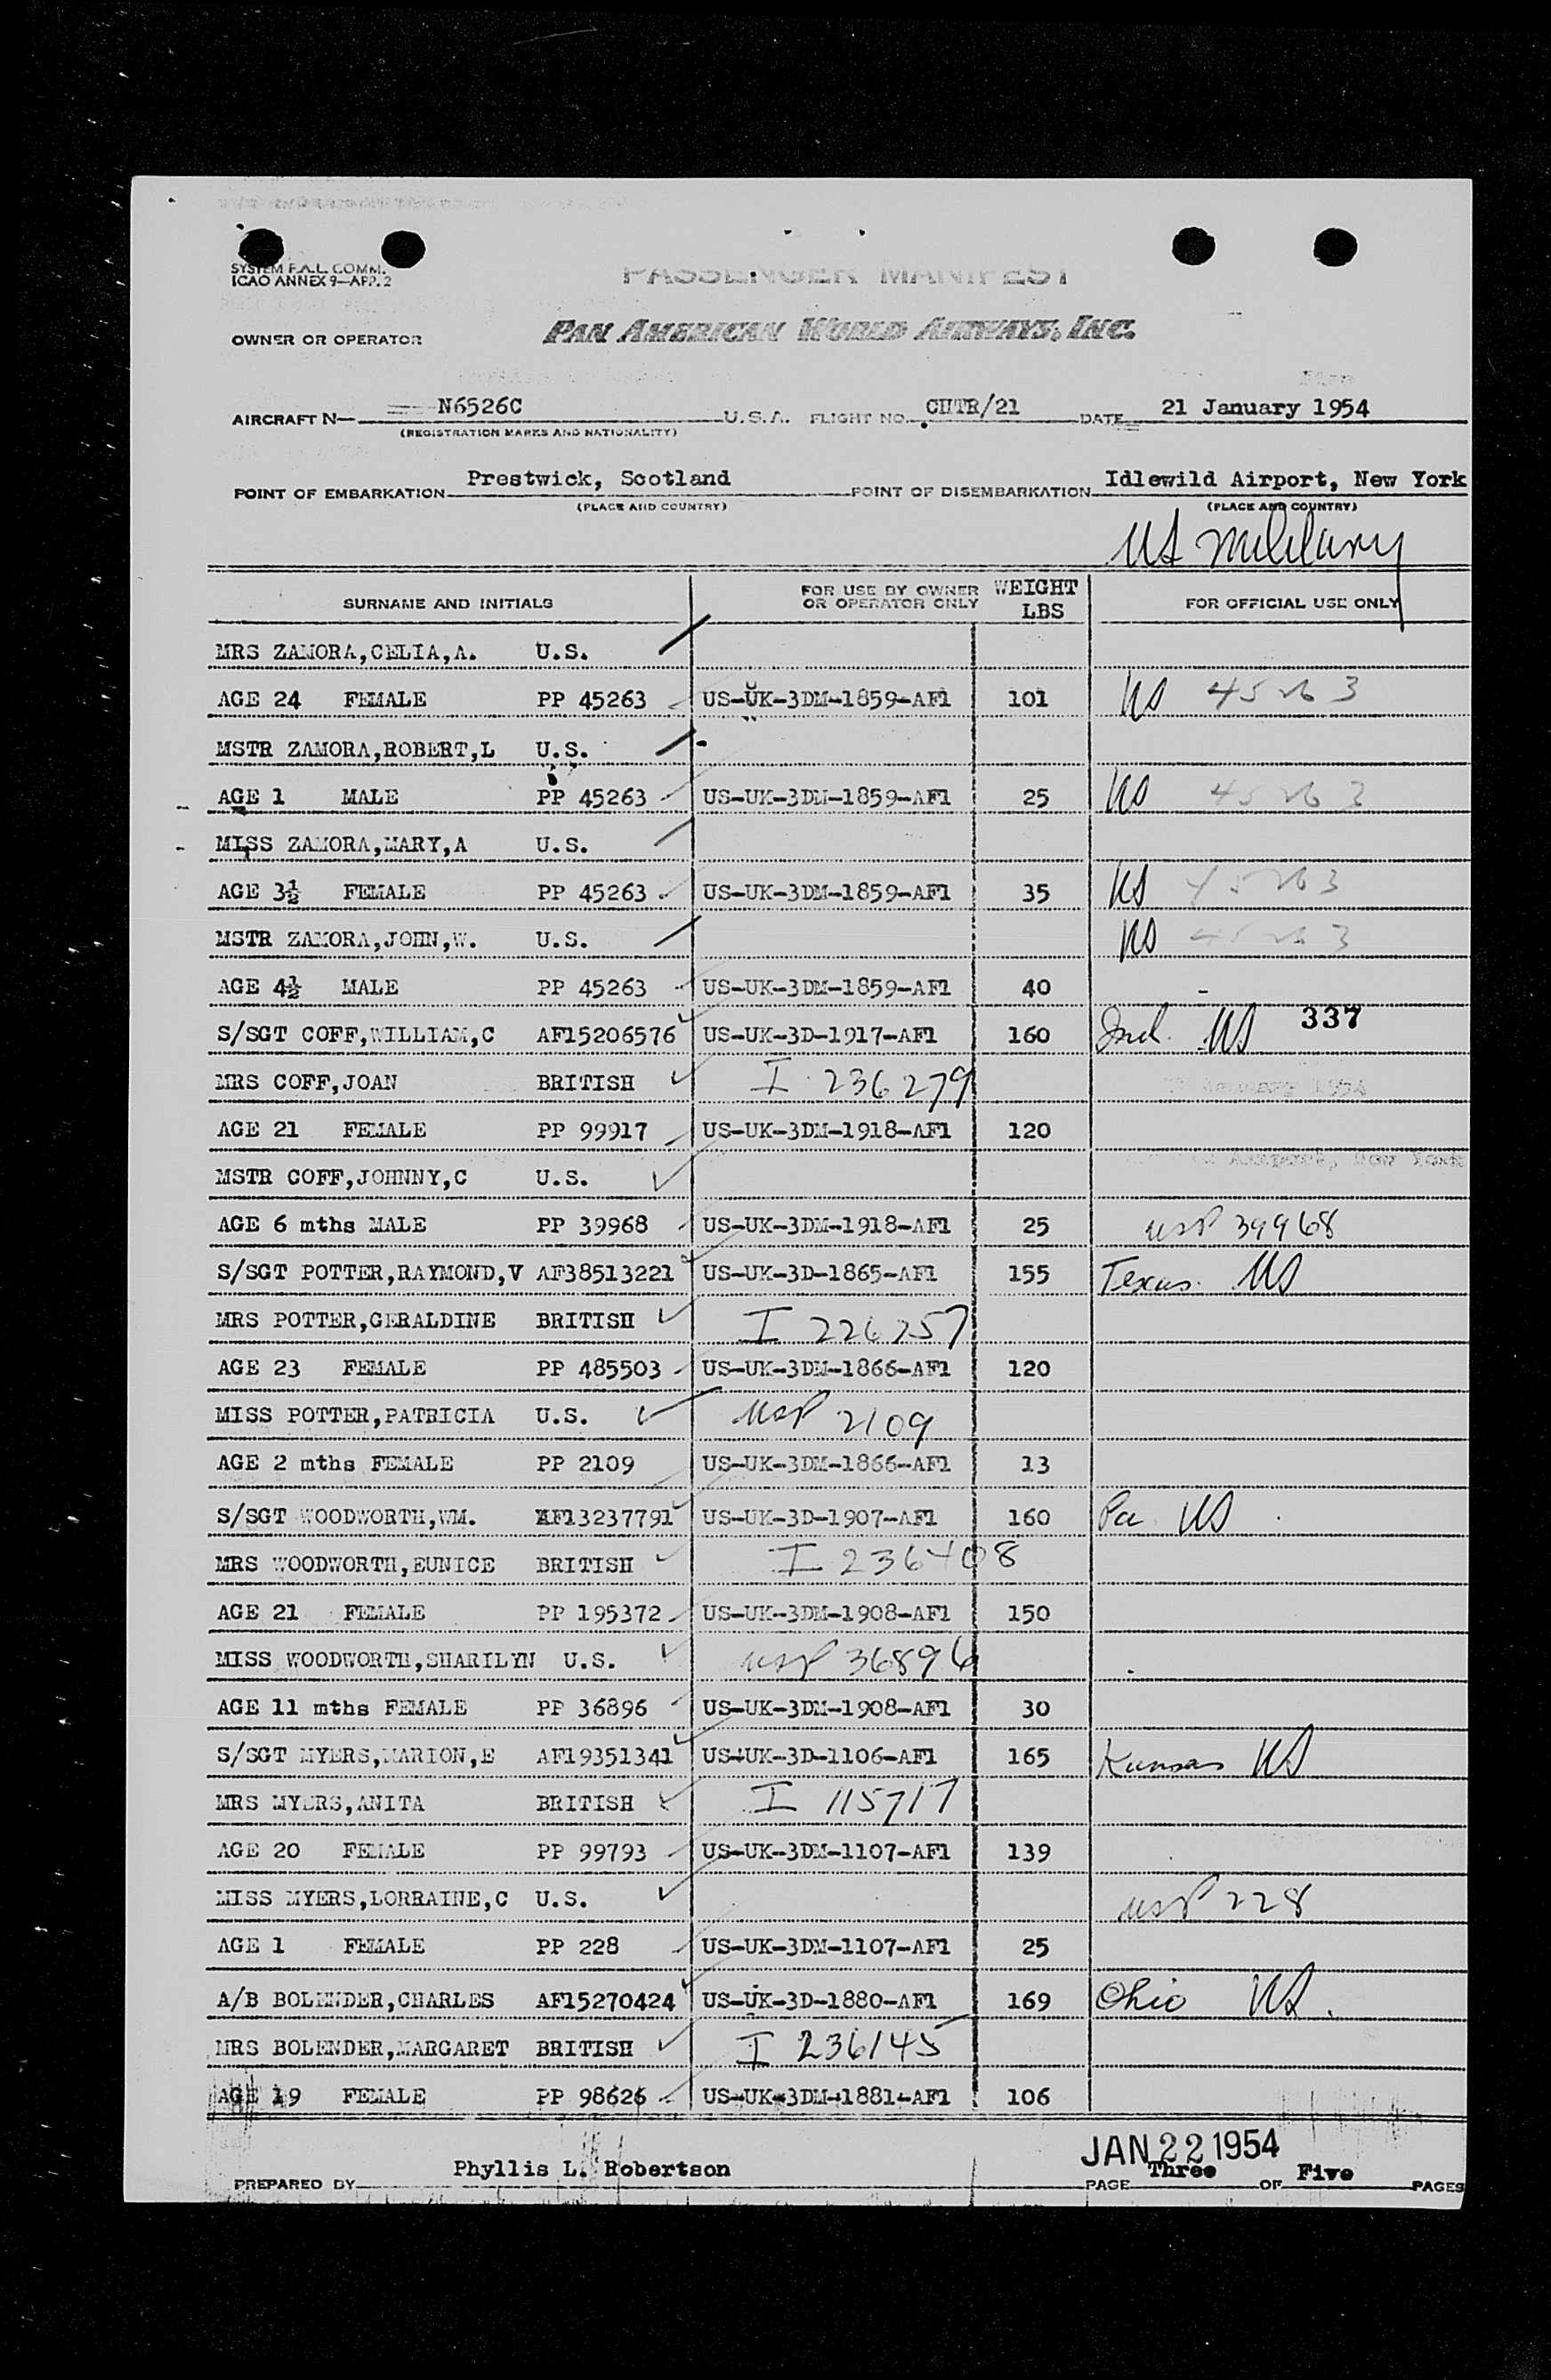 SYSTEM F.A.L. COMM.
ICAO ANNEX 9—APP. 2
PASSENGER MANIFEST
OWNER OR OPERATOR PAN AMERICAN WORLD AIRWAYS, INC.
AIRCRAFT N— N6526C U.S.A. FLIGHT NO. CHTR/21 DATE 21 January 1954
(REGISTRATION MARKS AND NATIONALITY)
POINT OF EMBARKATION Prestwick, Scotland POINT OF DISEMBARKATION Idlewild Airport, New York
(PLACE AND COUNTRY) (PLACE AND COUNTRY)
US Military
SURNAME AND INITIALS FOR USE BY OWNER OR OPERATOR ONLY WEIGHT LBS FOR OFFICIAL USE ONLY
MRS ZAMORA,CELIA,A. U.S.
AGE 24 FEMALE PP 45263 US-UK-3DM-1859-AF1 101 US 45263
MSTR ZAMORA,ROBERT,L U.S.
AGE 1 MALE PP 45263 US-UK-3DM-1859-AF1 25 US 45263
MISS ZAMORA,MARY,A U.S.
AGE 3½ FEMALE PP 45263 US-UK-3DM-1859-AF1 35 US 45263
MSTR ZAMORA,JOHN,W. U.S. US 45263
AGE 4½ MALE PP 45263 US-UK-3DM-1859-AF1 40
S/SGT COFF,WILLIAM,C AF15206576 US-UK-3D-1917-AF1 160 Ind. US 337
MRS COFF,JOAN BRITISH I 236279
AGE 21 FEMALE PP 99917 US-UK-3DM-1918-AF1 120
MSTR COFF,JOHNNY,C U.S.
AGE 6 mths MALE PP 39968 US-UK-3DM-1918-AF1 25 USP 39968
S/SGT POTTER,RAYMOND,V AF38513221 US-UK-3D-1865-AF1 155 Texas. US
MRS POTTER,GERALDINE BRITISH I 226757
AGE 23 FEMALE PP 485503 US-UK-3DM-1866-AF1 120
MISS POTTER,PATRICIA U.S. USP 2109
AGE 2 mths FEMALE PP 2109 US-UK-3DM-1866-AF1 13
S/SGT WOODWORTH,WM. AF13237791 US-UK-3D-1907-AF1 160 Pa US
MRS WOODWORTH,EUNICE BRITISH I 236408
AGE 21 FEMALE PP 195372 US-UK-3DM-1908-AF1 150
MISS WOODWORTH,SHARILYN U.S. USP 36896
AGE 11 mths FEMALE PP 36896 US-UK-3DM-1908-AF1 30
S/SGT MYERS,MARION,E AF19351341 US-UK-3D-1106-AF1 165 Kansas US
MRS MYERS,ANITA BRITISH I 115717
AGE 20 FEMALE PP 99793 US-UK-3DM-1107-AF1 139
MISS MYERS,LORRAINE,C U.S. USP 228
AGE 1 FEMALE PP 228 US-UK-3DM-1107-AF1 25
A/B BOLENDER,CHARLES AF15270424 US-UK-3D-1880-AF1 169 Ohio US.
MRS BOLENDER,MARGARET BRITISH I 236145
AGE 19 FEMALE PP 98626 US-UK-3DM-1881-AF1 106
JAN 22 1954
PREPARED BY Phyllis L. Robertson PAGE Three OF Five PAGES